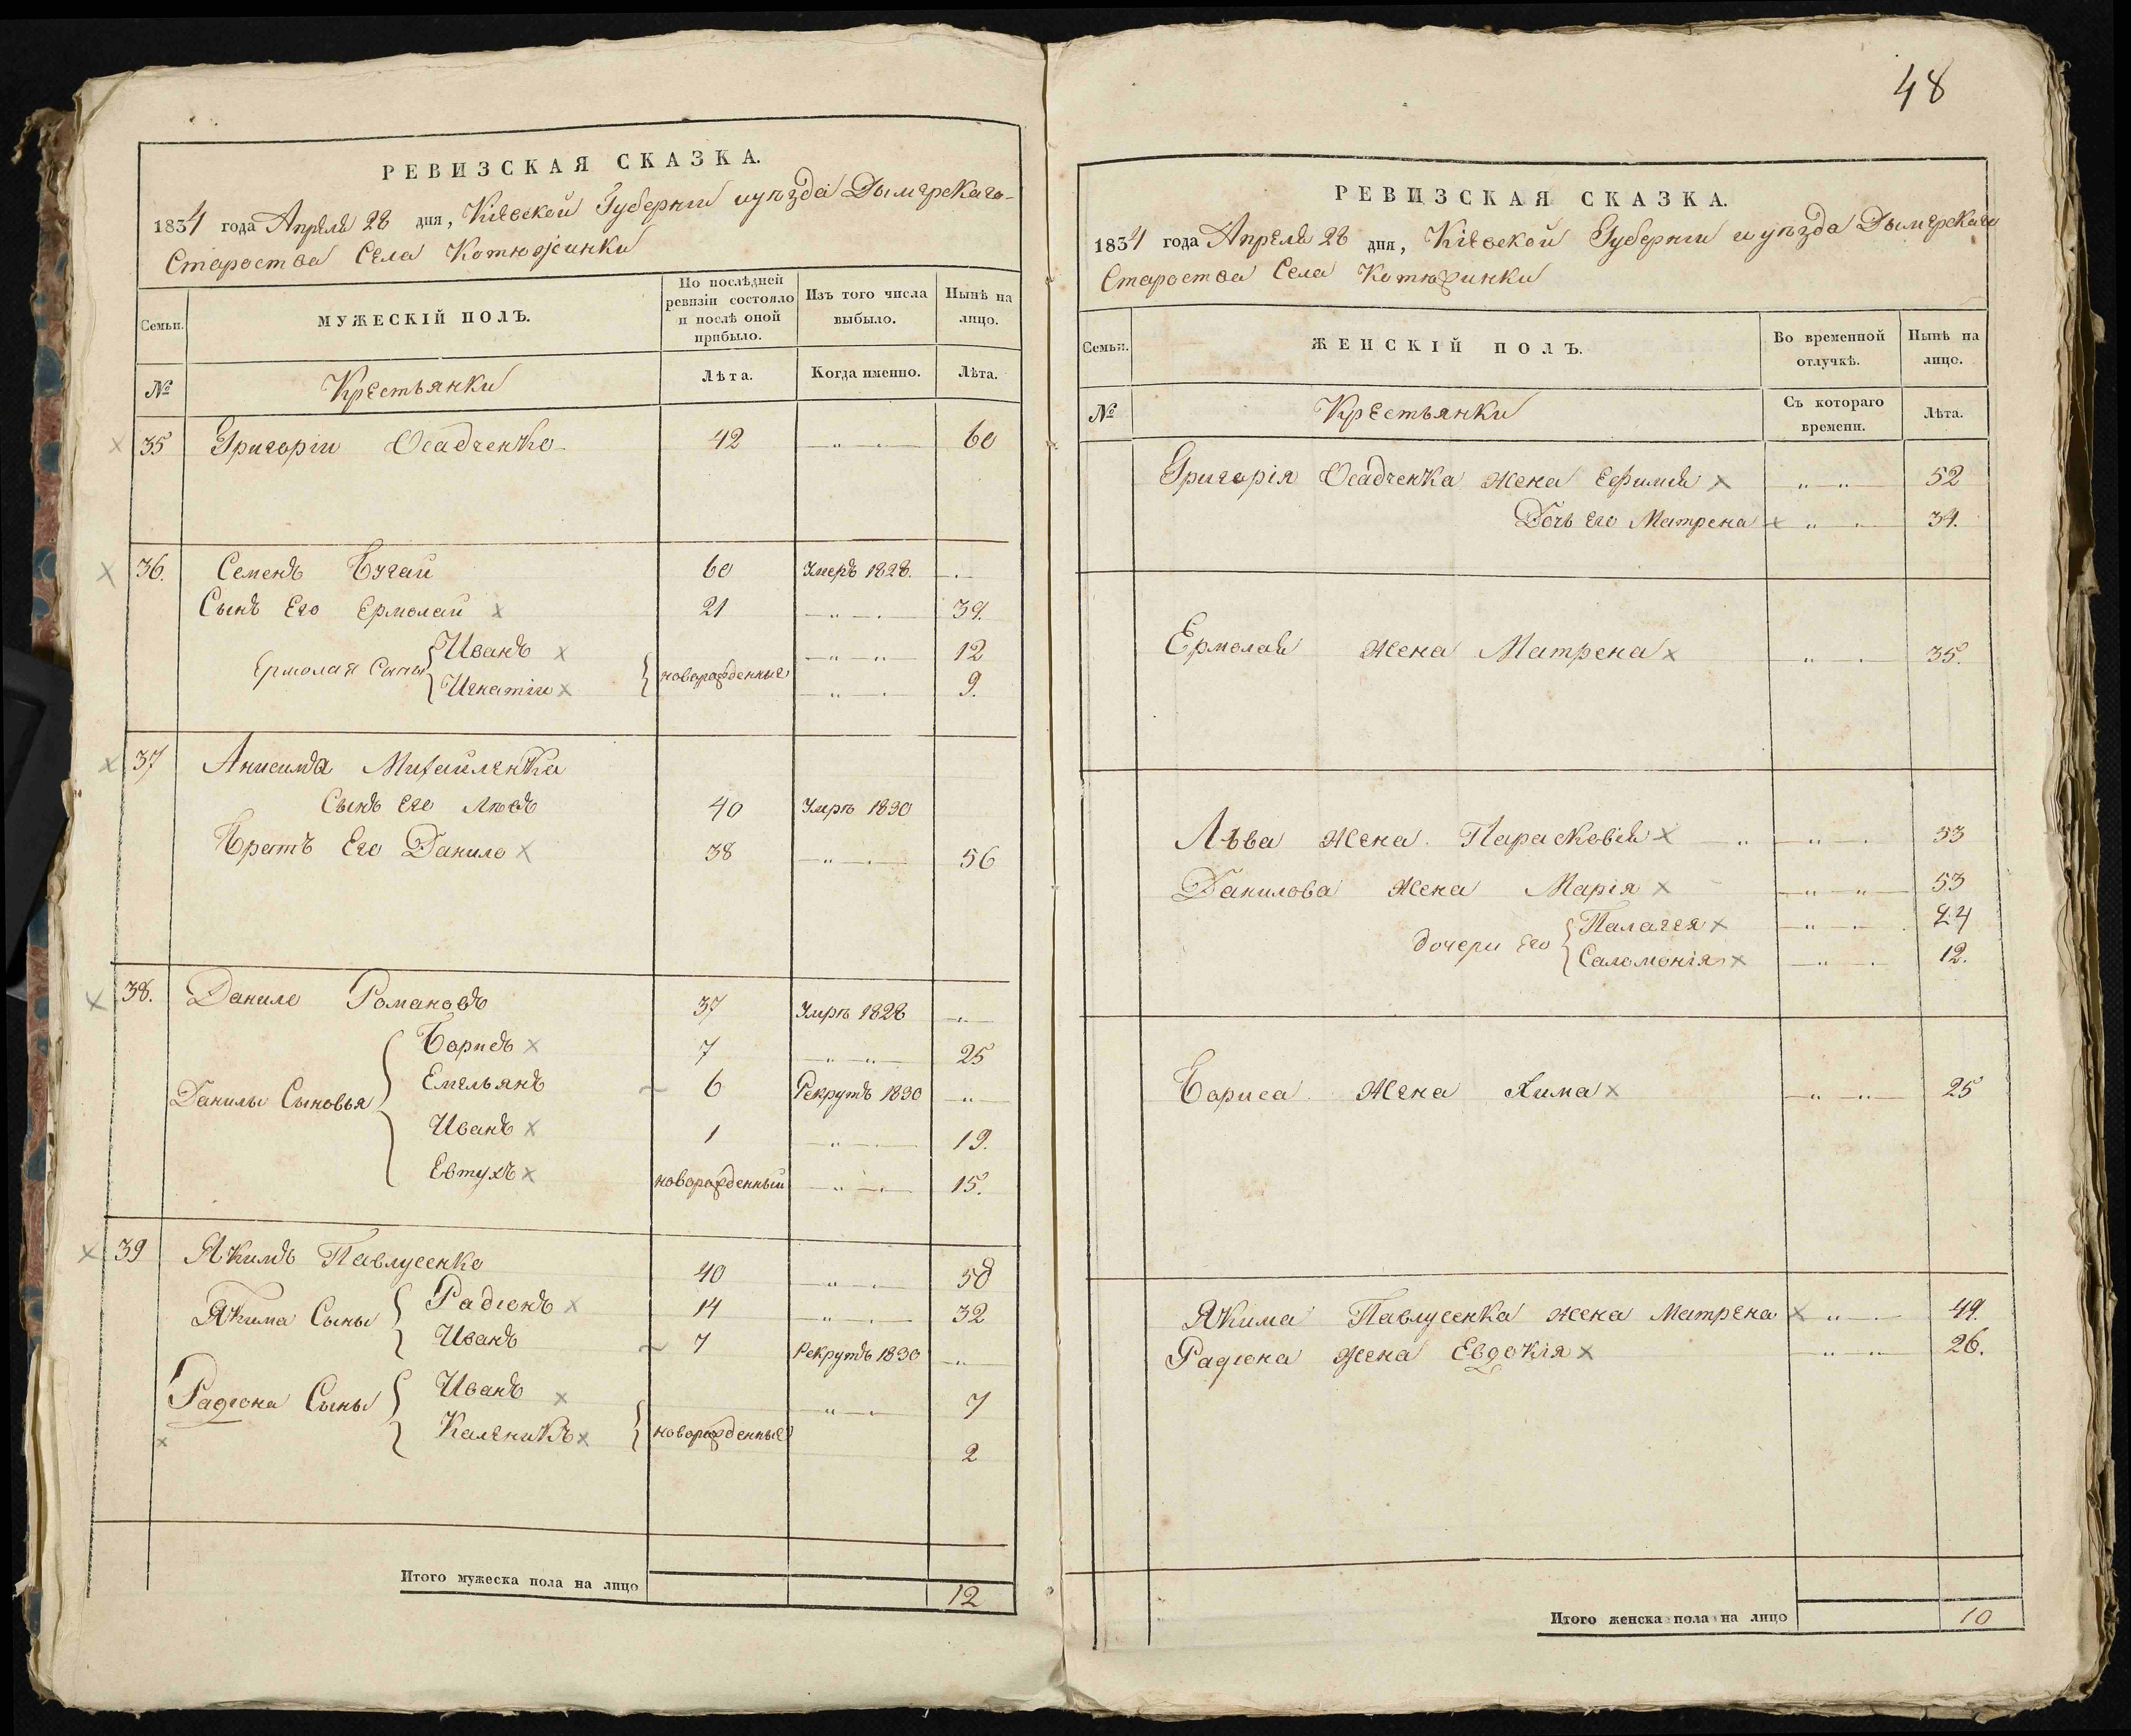 РЕВИЗСКАЯ СКАЗКА.
1834 года Апреля 28 дня, Кіевской Губерніи и уѣзда Дымерскаго
Староства Села Котюжинки
Семьи.
МУЖЕСКІЙ ПОЛЪ.
По послѣдней ревизіи состояло и послѣ оной прибыло.
Изъ того числа выбыло.
Нынѣ на лицо.
№
Крестьянки
Лѣта.
Когда именно.
Лѣта.
35 Григорій Осадченко 42 60
36. Семенъ Бугай 60 Умеръ 1828.
Сынъ Его Ермолай 21 39.
Ермолая Сыны Иванъ новорожденные 12
Игнатій 9.
37 Анисима Михайленка
Сынъ его Левъ 40 Умре 1830
Братъ Его Данило 38 56
38. Данило Романовъ 37 Умре 1828
Данилы Сыновья Борисъ 7 25
Емельянъ 6 Рекрутъ 1830
Иванъ 1 19.
Евтухъ новорожденный 15.
39 Якимъ Павлусенко 40 58
Якима Сыны Радіонъ 14 32
Иванъ 7 Рекрутъ 1830
Радіона Сыны Иванъ новорожденные 7
Каленикъ 2
Итого мужеска пола на лицо 12
48
РЕВИЗСКАЯ СКАЗКА.
1834 года Апреля 28 дня, Кіевской Губерніи и уѣзда Дымерскаго
Староства Села Котюжинки
Семьи.
ЖЕНСКІЙ ПОЛЪ.
Во временной отлучкѣ.
Нынѣ на лицо.
№
Крестьянки
Съ котораго времени.
Лѣта.
Григорія Осадченка жена Ефимія 52
Дочь его Матрена 34.
Ермолая жена Матрена 35.
Лѣва жена Парасковія 53
Данилова жена Марія 53
дочери его Палагея 24
Саломонія 12.
Бориса жена Хима 25
Якима Павлусенка жена Матрена 49.
Радіона жена Евдокія 26.
Итого женска пола на лицо 10